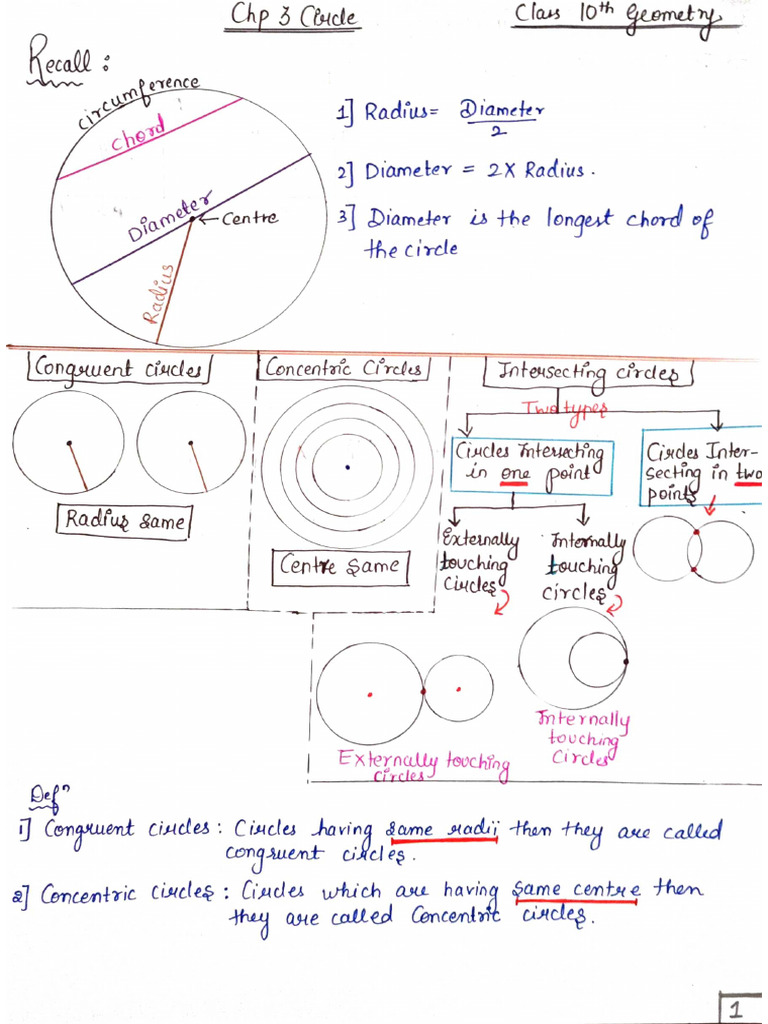 Chp 3 Circle
Class 10th Geometry
Recall :
circumference
chord
Diameter
Centre
Radius
1] Radius = Diameter
2
2] Diameter = 2 X Radius.
3] Diameter is the longest chord of
the circle
Congruent circles
Radius same
Concentric Circles
Centre same
Intersecting circles
Two types
Circles intersecting
in one point
Circles Inter-
secting in two
points
Externally
touching
circles
Internally
touching
circles
Externally touching
circles
Internally
touching
Circles
Defn
1] Congruent circles : Circles having same radii then they are called
congruent circles.
2] Concentric circles : Circles which are having same centre then
they are called Concentric circles.
1